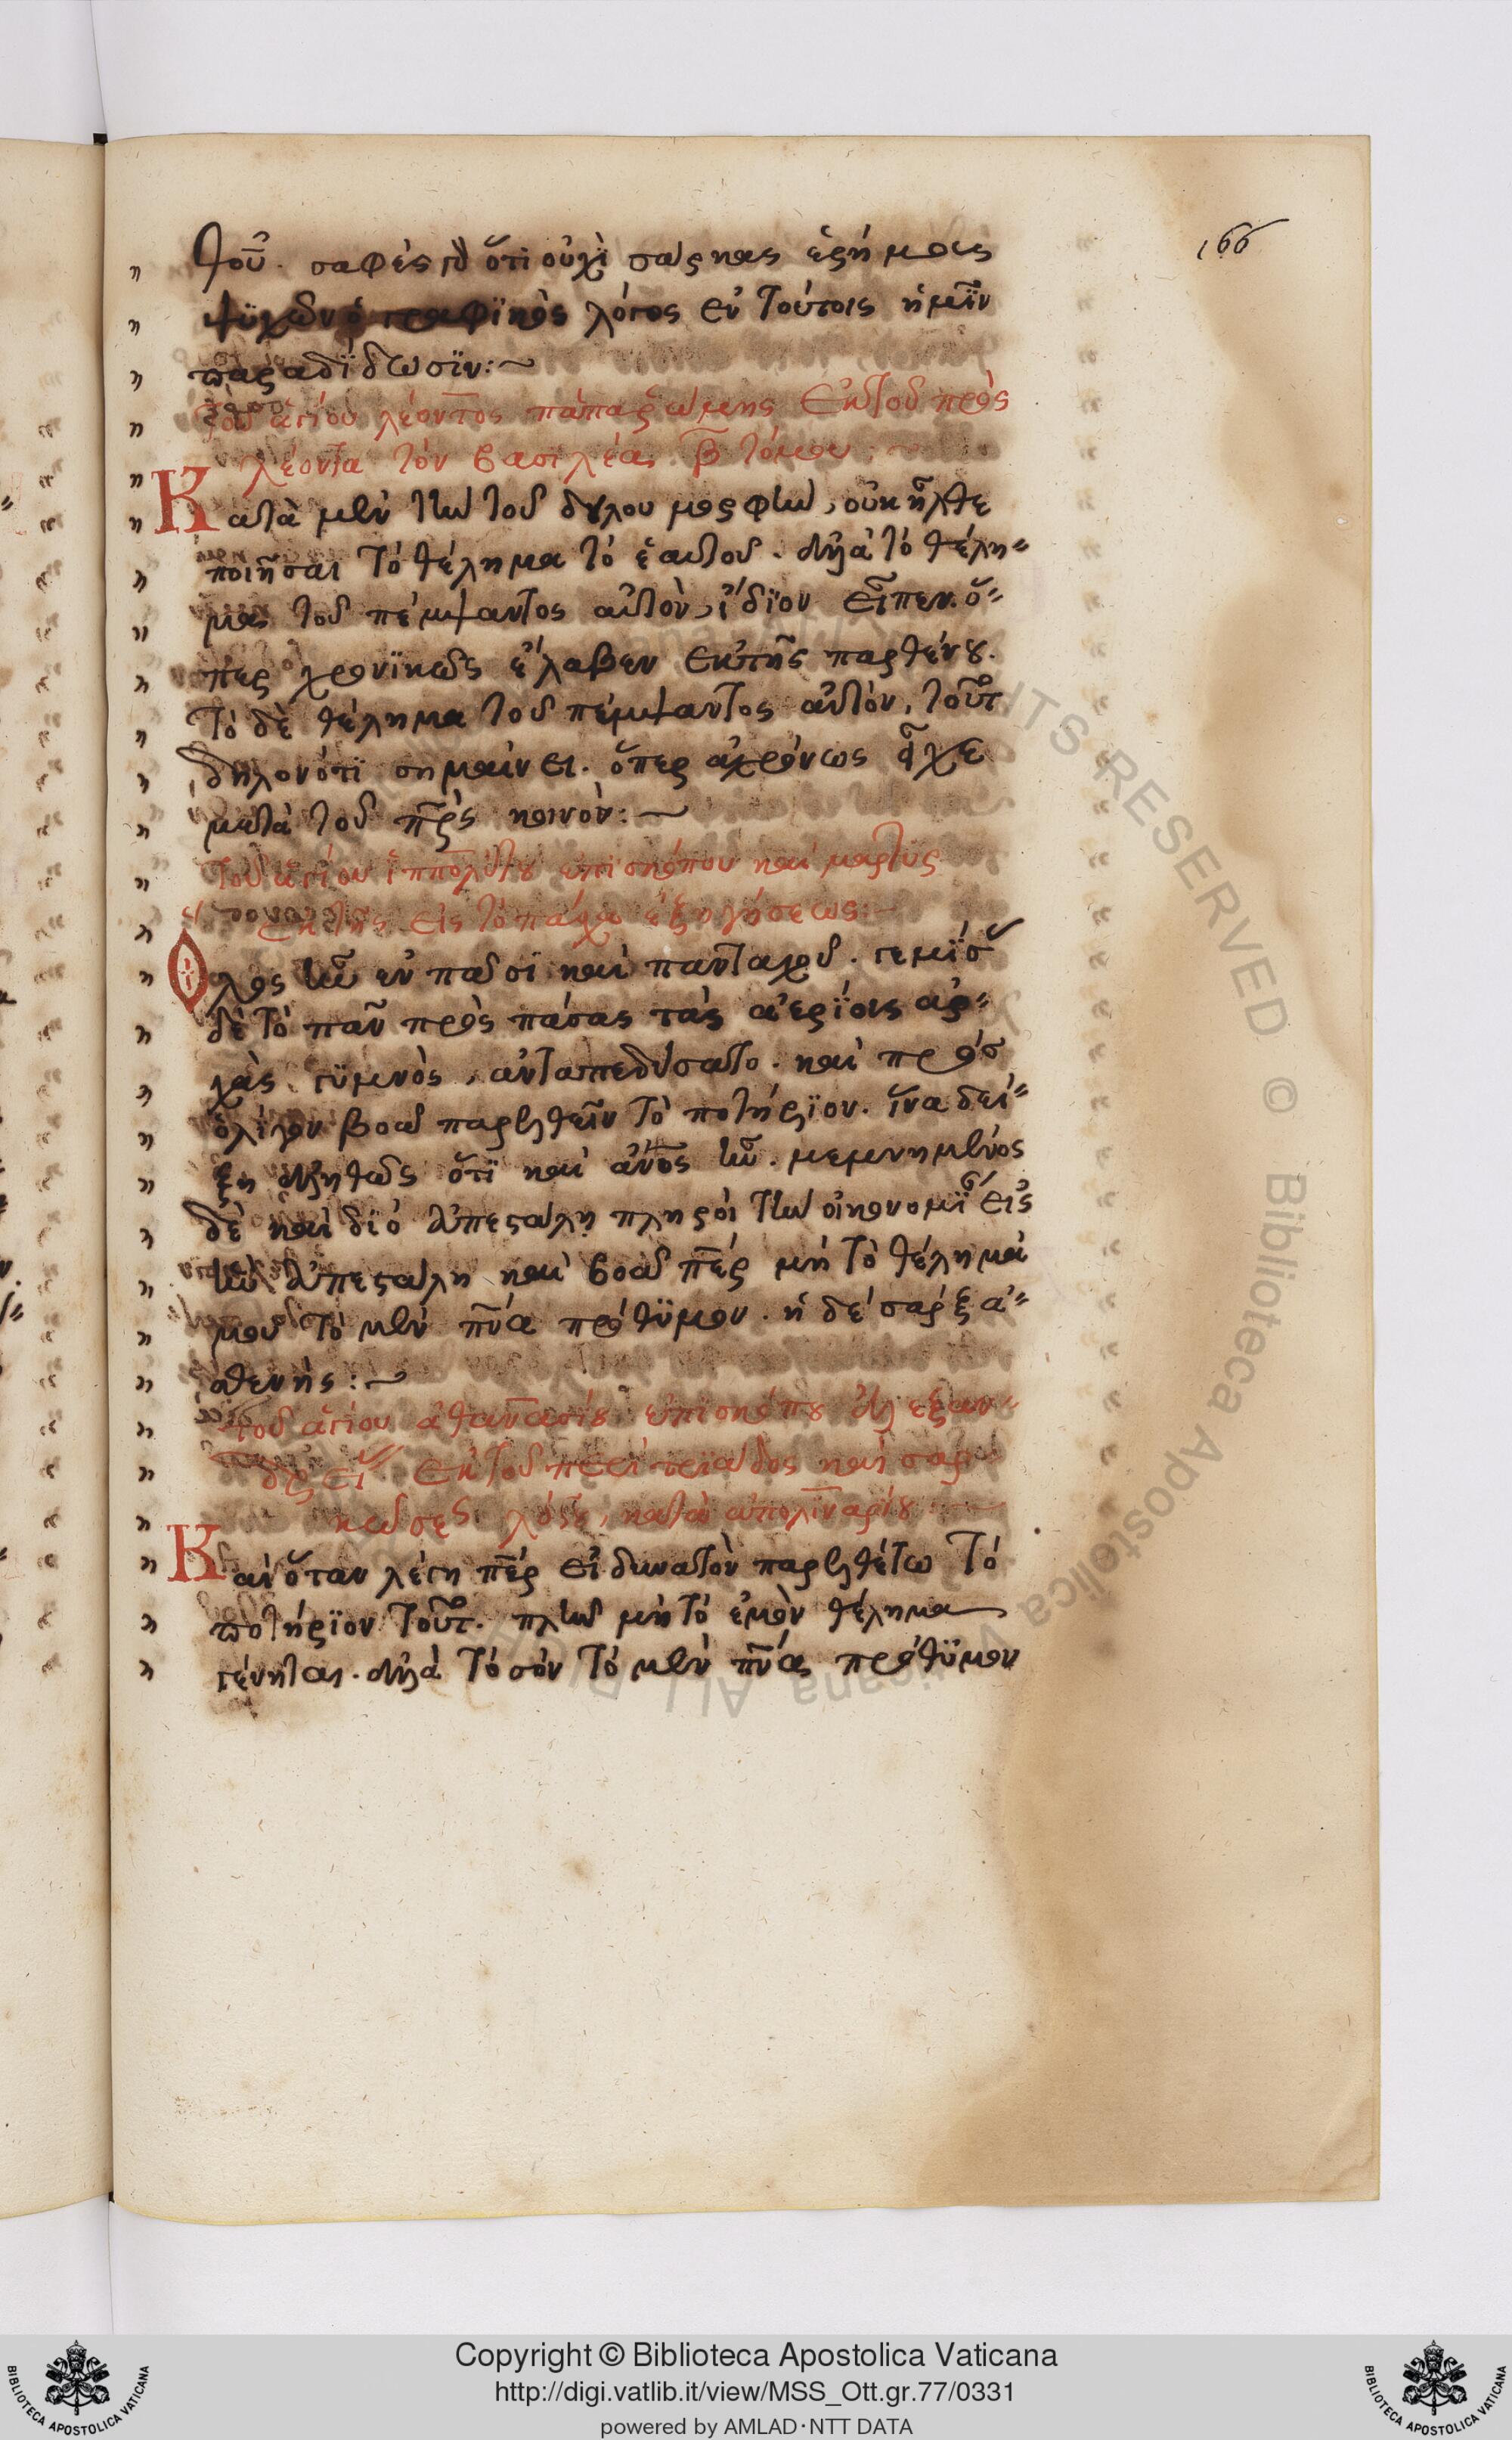 166
τοῦ. σαφὲς δὲ ὅτι οὐχὶ σάρκας ἐρήμους
ψυχῶν ὁ γραφϊκὸς λόγος ἐν τούτοις ἡμῖν
παραδίδωσϊν:~
Τοῦ ἁγίου λέοντος πάπα ῥώμης ἐκ τοῦ πρὸς
λέοντα τὸν βασιλέα β τόμου :~
Κατὰ μὲν τὴν τοῦ δούλου μορφὴν, οὐκ ἦλθε
ποιῆσαι τὸ θέλημα τὸ ἑαυτοῦ. ἀλλὰ τὸ θέλη-
μα τοῦ πέμψαντος αὐτὸν, ἴδϊον εἶπεν ὅ-
περ χρονϊκῶς ἔλαβεν ἐκ τῆς παρθένου.
τὸ δὲ θέλημα τοῦ πέμψαντος αὐτὸν, τοῦτο
δηλονότι σημαίνει. ὅπερ ἀχρόνως εἶχε
μετὰ τοῦ πρς κοινόν:~
Τοῦ ἁγίου ἱππολύτου ἐπισκόπου καὶ μάρτυρος
ἐκ τῆς εἰς τὸ πάσχα ἐξηγήσεως:~
Ὅλος ἦν ἐν πᾶσϊ καὶ πανταχοῦ. γεμίσας
δὲ τὸ πᾶν πρὸς πάσας τὰς ἀερίους ἀρ-
χὰς γϋμνὸς, ἀνταπεδύσατο. καὶ πρὸς
ὀλίγον βοᾶ παρελθεῖν τὸ ποτήρϊον. ἵνα δεί-
ξη ἀληθῶς ὅτϊ καὶ ἄνος ἦν. μεμνημένος
δὲ καὶ δϊὸ ἀπεστάλη πληροῖ τὴν οἰκονομίαν εἰς
ἣν ἀπεστάλη καὶ βοᾶ περ μὴ τὸ θέλημά
μου τὸ μὲν πνα πρόθϋμον. ἡ δὲ σὰρξ ἀ-
σθενής:~
Τοῦ ἁγίου ἀθανασίου ἐπισκόπου ἀλεξαν-
δρείας ἐκ τοῦ περὶ τρϊάδος καὶ σαρ
κώσεως λόγου, κατὰ ἀπολιναρίου:~
Κἂν ὅταν λέγη περ εἰ δυνατὸν παρελθέτω τὸ
ποτήρϊον τοῦτο. πλὴν μὴ τὸ ἐμὸν θέλημα
γένηται. ἀλλὰ τὸ σόν τὸ μὲν πνα πρόθϋμον
Copyright © Biblioteca Apostolica Vaticana
http://digi.vatlib.it/view/MSS_Ott.gr.77/0331
powered by AMLAD·NTT DATA
BIBLIOTECA APOSTOLICA VATICANA
BIBLIOTECA APOSTOLICA VATICANA